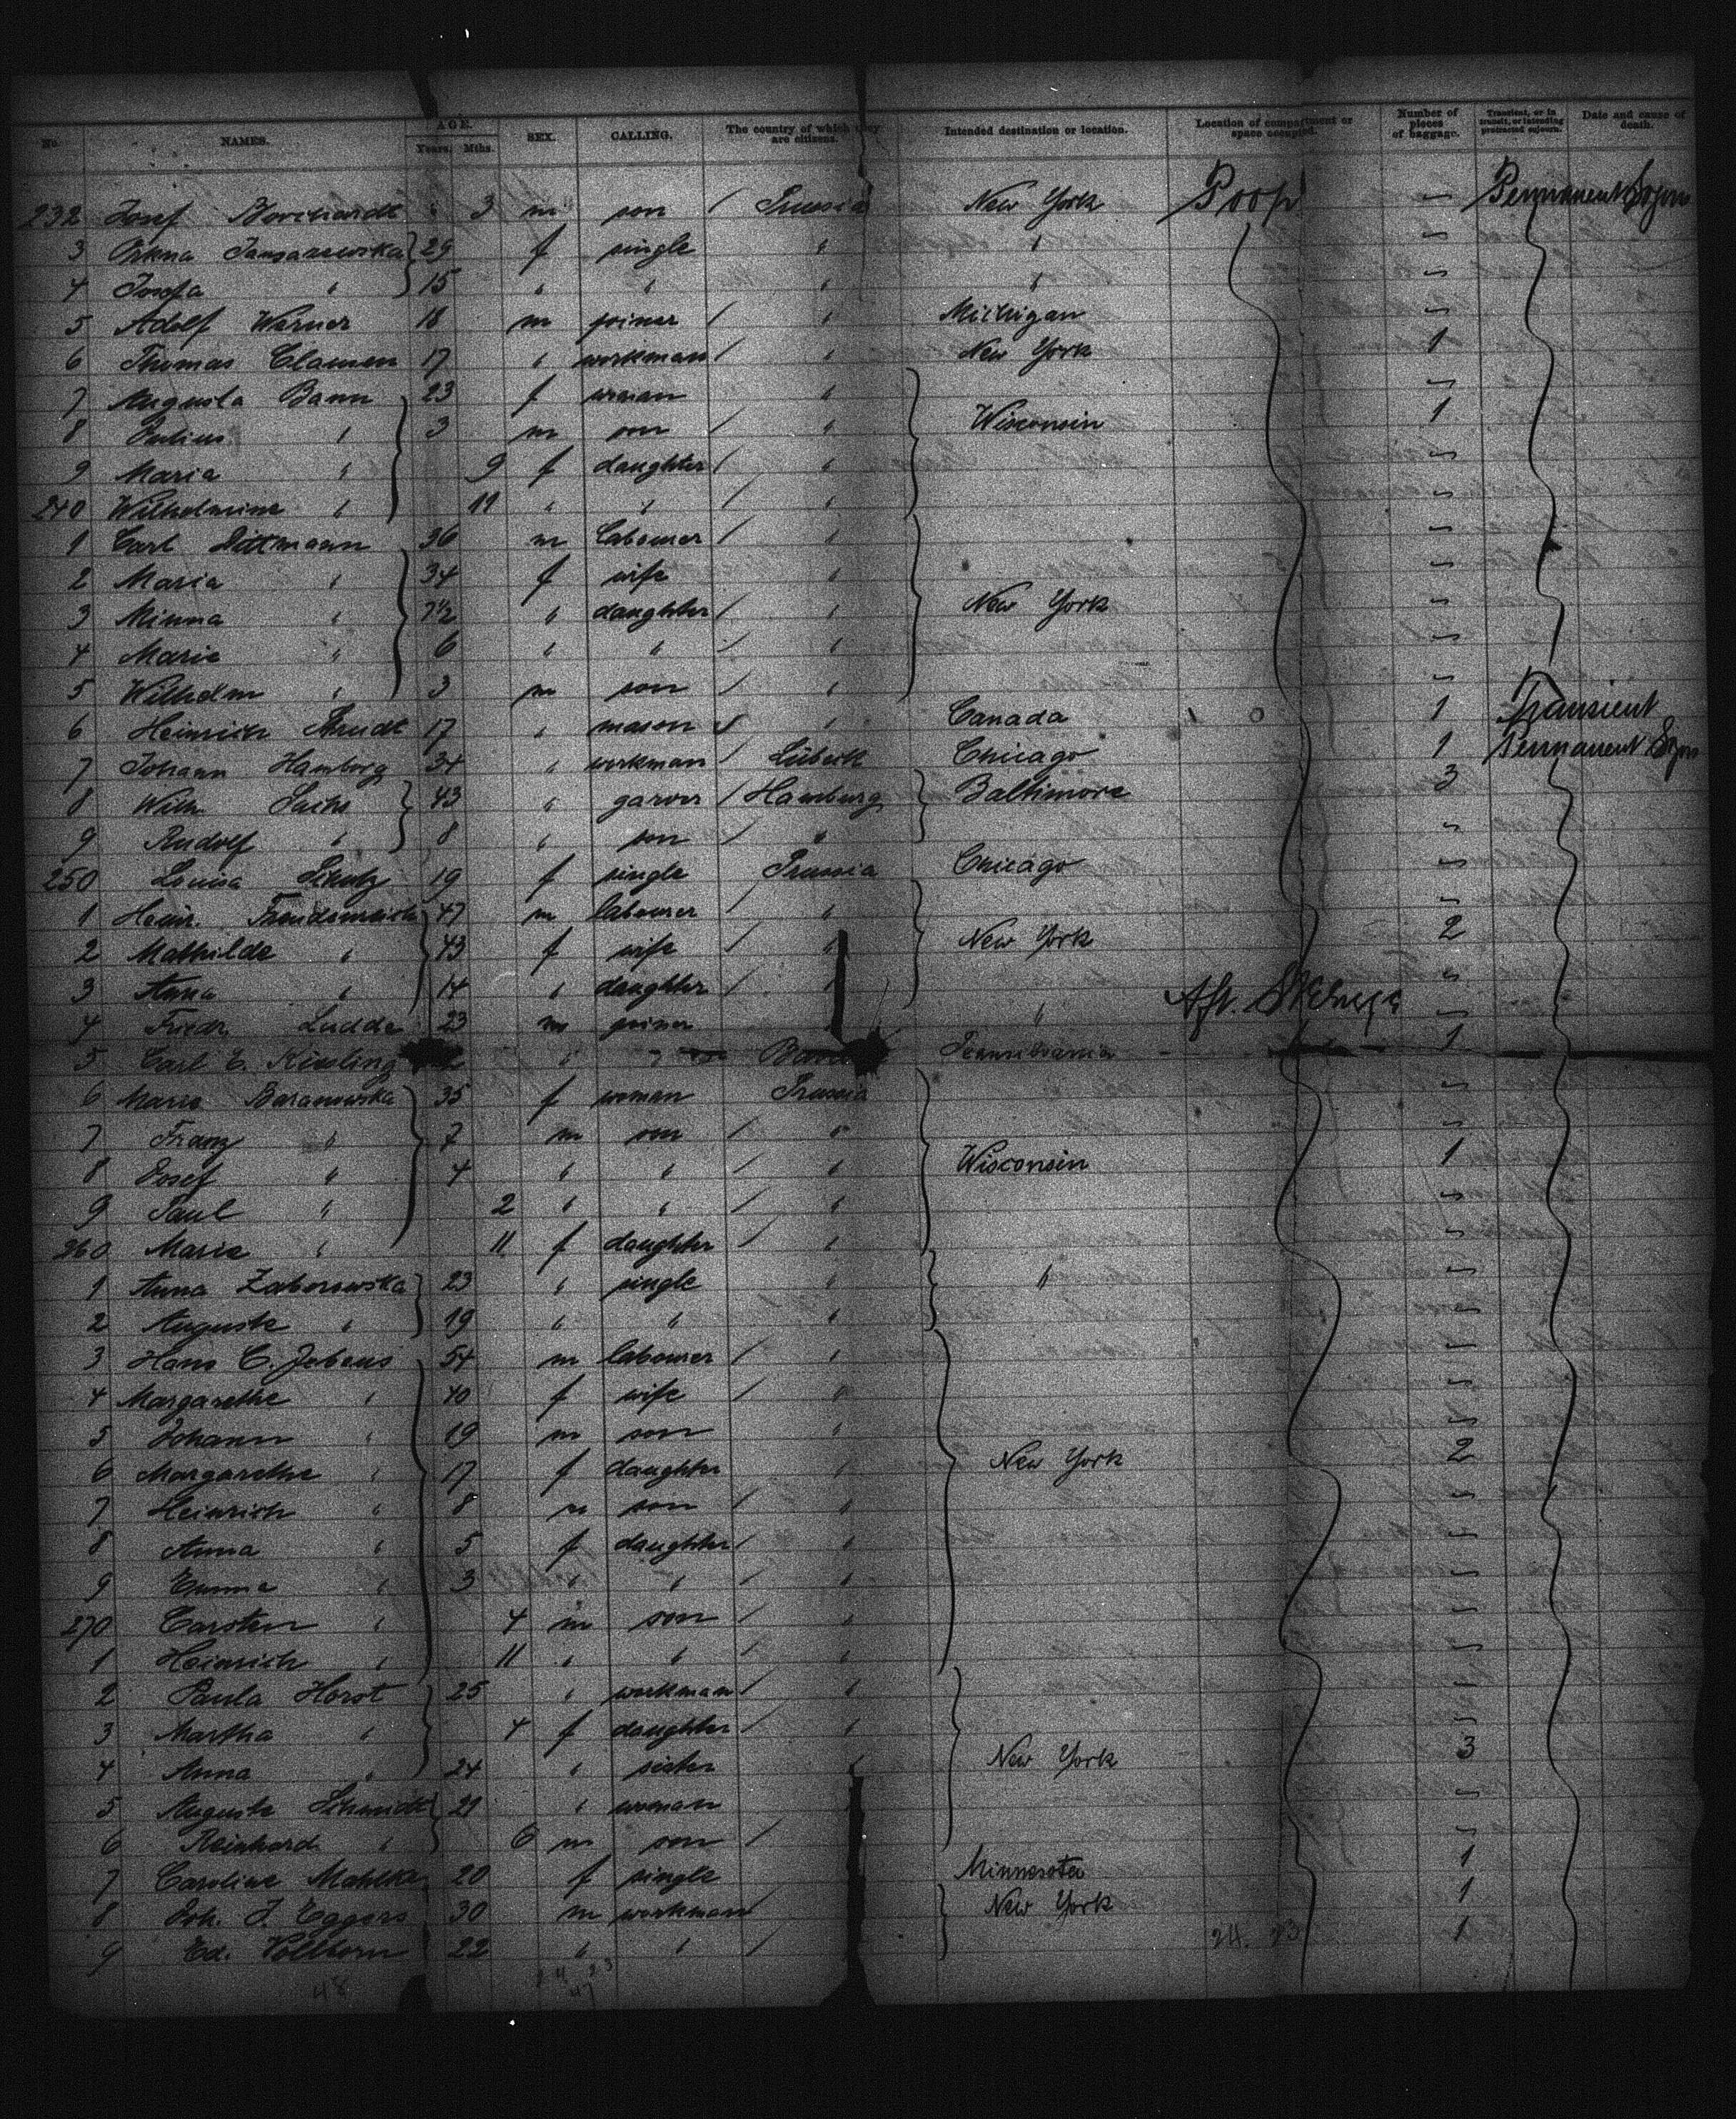 No. NAMES. AGE. Years. Mths. SEX. CALLING. The country of which they are citizens. Intended destination or location. Location of compartment or space occupied. Number of pieces of baggage. Transient, or in transit, or intending protracted sojourn. Date and cause of death.
232 Josef Borchardt " 3 m son / Prussia New York Poop — Permanent Sojurn
3 29 f single " " —
4 Josefa " 15 " " " " —
5 Adolf Werner 18 m joiner / " Michigan —
6 Thomas Clausen 17 " workman / " New York 1
7 Augusta Bann 23 f woman " —
8 Julius " 3 m son / " Wisconsin 1
9 Maria " 9 f daughter / " —
240 Wilhelmine " 11 " " / " —
1 Carl Dittmann 36 m labourer / " —
2 Maria " 34 f wife " —
3 Minna " 7½ " daughter / " New York —
4 Marie " 6 " " / " —
5 Wilhelm " 3 m son / " —
6 Heinrich Arndt 17 " mason / " Canada 1 Transient
7 Johann Hamborg 34 " workman / Lübeck Chicago 1 Permanent Sojurn
8 Wilh. Sachs 43 " / Hamburg Baltimore 3
9 Rudolf " 8 " son / " —
250 Louisa Schulz 19 f single Prussia Chicago —
1 Heinr. 47 m labourer / " —
2 Mathilde " 43 f wife / " New York 2
3 Anna " 14 " daughter / " —
4 Friedr. Ludde 23 m joiner " Aft. Steerage —
5 Carl E. Kissling " " Pennsilvania 1
6 Marie Baranowska 35 f woman Prussia —
7 Franz " 7 m son / " —
8 Josef " 4 " " / " Wisconsin 1
9 Paul " 2 " " / " —
260 Marie " 11 f daughter / " —
1 Anna Zaborowska 23 " single " " —
2 Auguste " 19 " " " —
3 Hans C. Jebens 54 m labourer / " —
4 Margarethe " 40 f wife / " —
5 Johann " 19 m son " —
6 Margarethe " 17 f daughter " New York 2
7 Heinrich " 8 m son / " —
8 Anna " 5 f daughter / " —
9 Emma " 3 " " / " —
270 Carsten " 4 m son / " —
1 Heinrich " 11 " " / " —
2 Paula Horst 25 " workman / " —
3 Martha " 4 f daughter / " —
4 Anna " 24 " sister " New York 3
5 Auguste Schmidt 21 " woman —
6 Reinhard " 6 m son / —
7 Caroline Mahlke 20 f single Minnesota 1
8 Joh. J. Eggers 30 m workman New York 1
9 Ed. Vollborn 22 " " / 24. 23 1
48 24 23
47